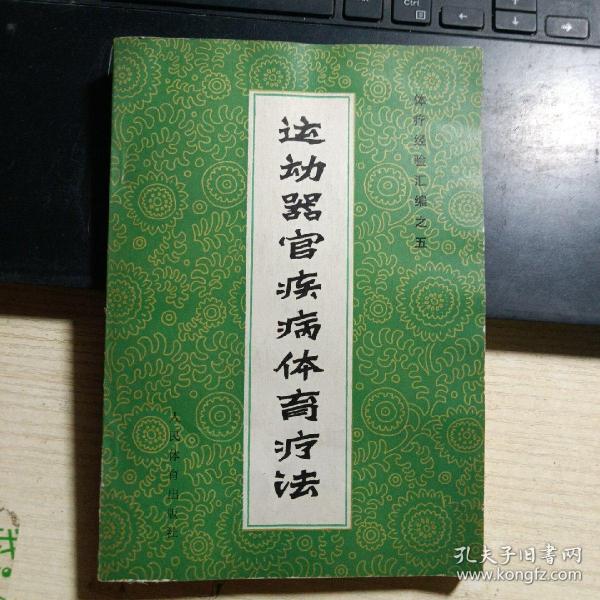 体疗经验汇编之五
运动器官疾病体育疗法
人民体育出版社
Ctrl
孔夫子旧书网
www.kongfz.com